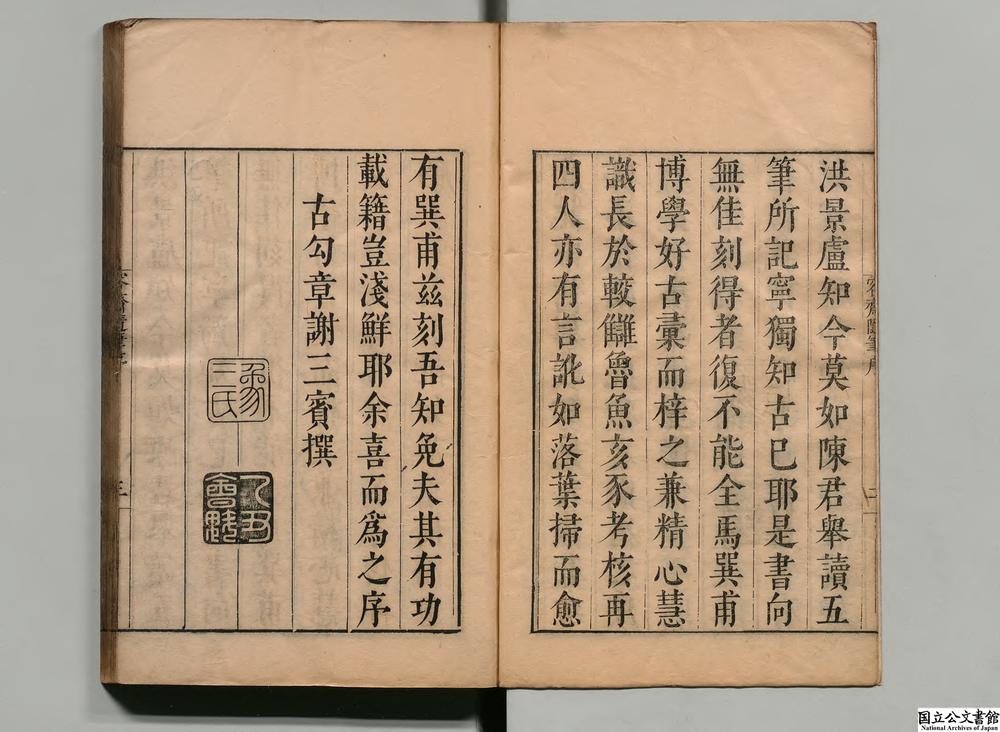 洪景盧知今莫如陳君舉讀五
筆所記寧獨知古已耶是書向
無佳刻得者復不能全馬巽甫
博學好古彚而梓之兼精心慧
識長於較讎魯魚亥豕考核再
四人亦有言訛如落葉掃而愈
容齋隨筆序
二
有巽甫茲刻吾知免夫其有功
載籍豈淺鮮耶余喜而爲之序
古勾章謝三賓撰
三
国立公文書館
National Archives of Japan